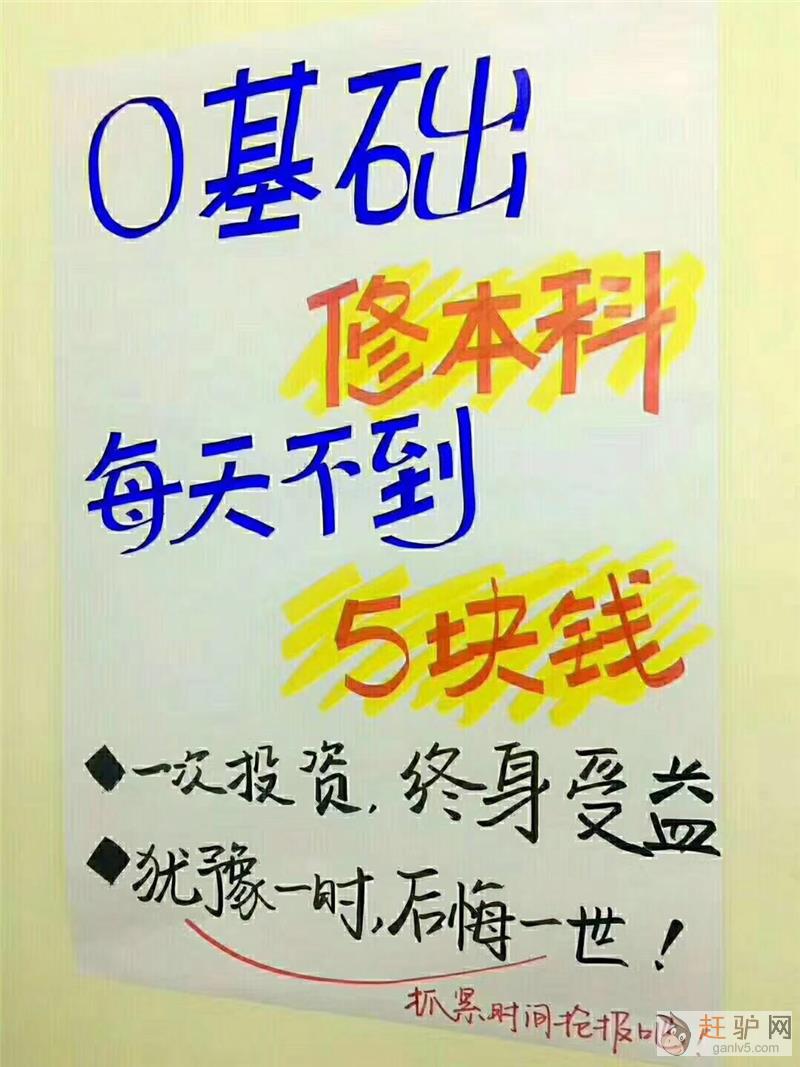 0基础
修本科
每天不到
5块钱
◆一次投资,终身受益
◆犹豫一时,后悔一世!
抓紧时间抢报吧
赶驴网
ganlv5.com